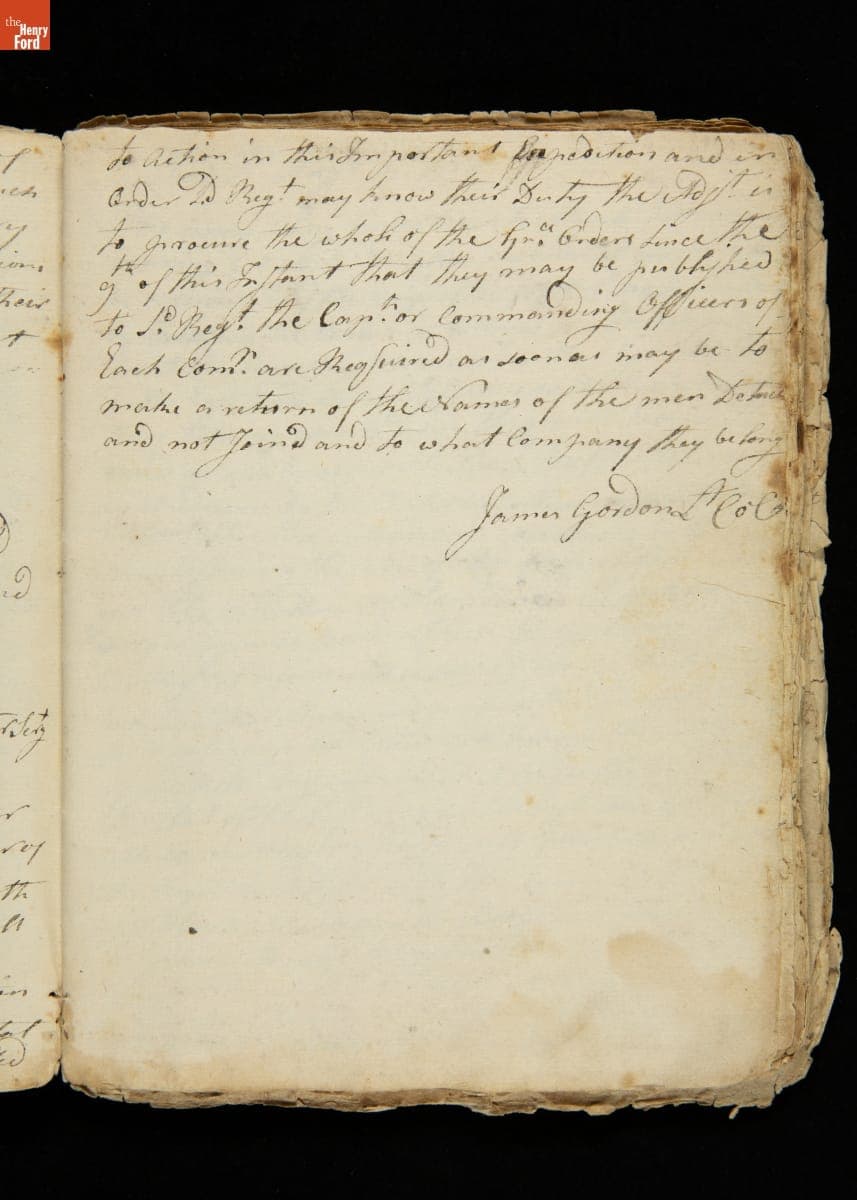 the
Henry
Ford
to Action in this Important Expedition and in
Order Sd Regt may know their Duty the Adjt is
to procure the whole of the Genl Orders since the
9th of this Instant that they may be published
to Sd Regt. the Captn or Commanding Officers of
Each Comy. are Required as soon as may be to
make a return of the Names of the men
and not Joind and to what Company they belong
James Gordon Lt Col